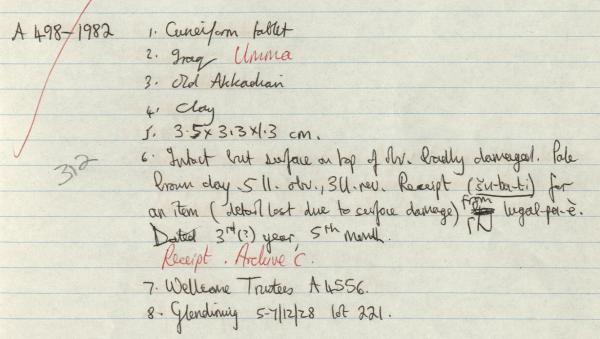 A 498-1982 1. Cuneiform tablet
2. Iraq Umma
3. Old Akkadian
4. Clay
5. 3.5 x 3.3 x 1.3 cm.
312
6. Intact but surface on top of obv. badly damaged. Pale
brown clay. 5 ll. obv., 3 ll. rev. Receipt (šu-ba-ti) for
an item (detail lost due to surface damage) from lugal-pa-è.
Dated 3rd(?) year 5th month.
Receipt. Archive 'C'.
7. Wellcome Trustees A 4556.
8. Glendining 5-7/12/28 lot 221.